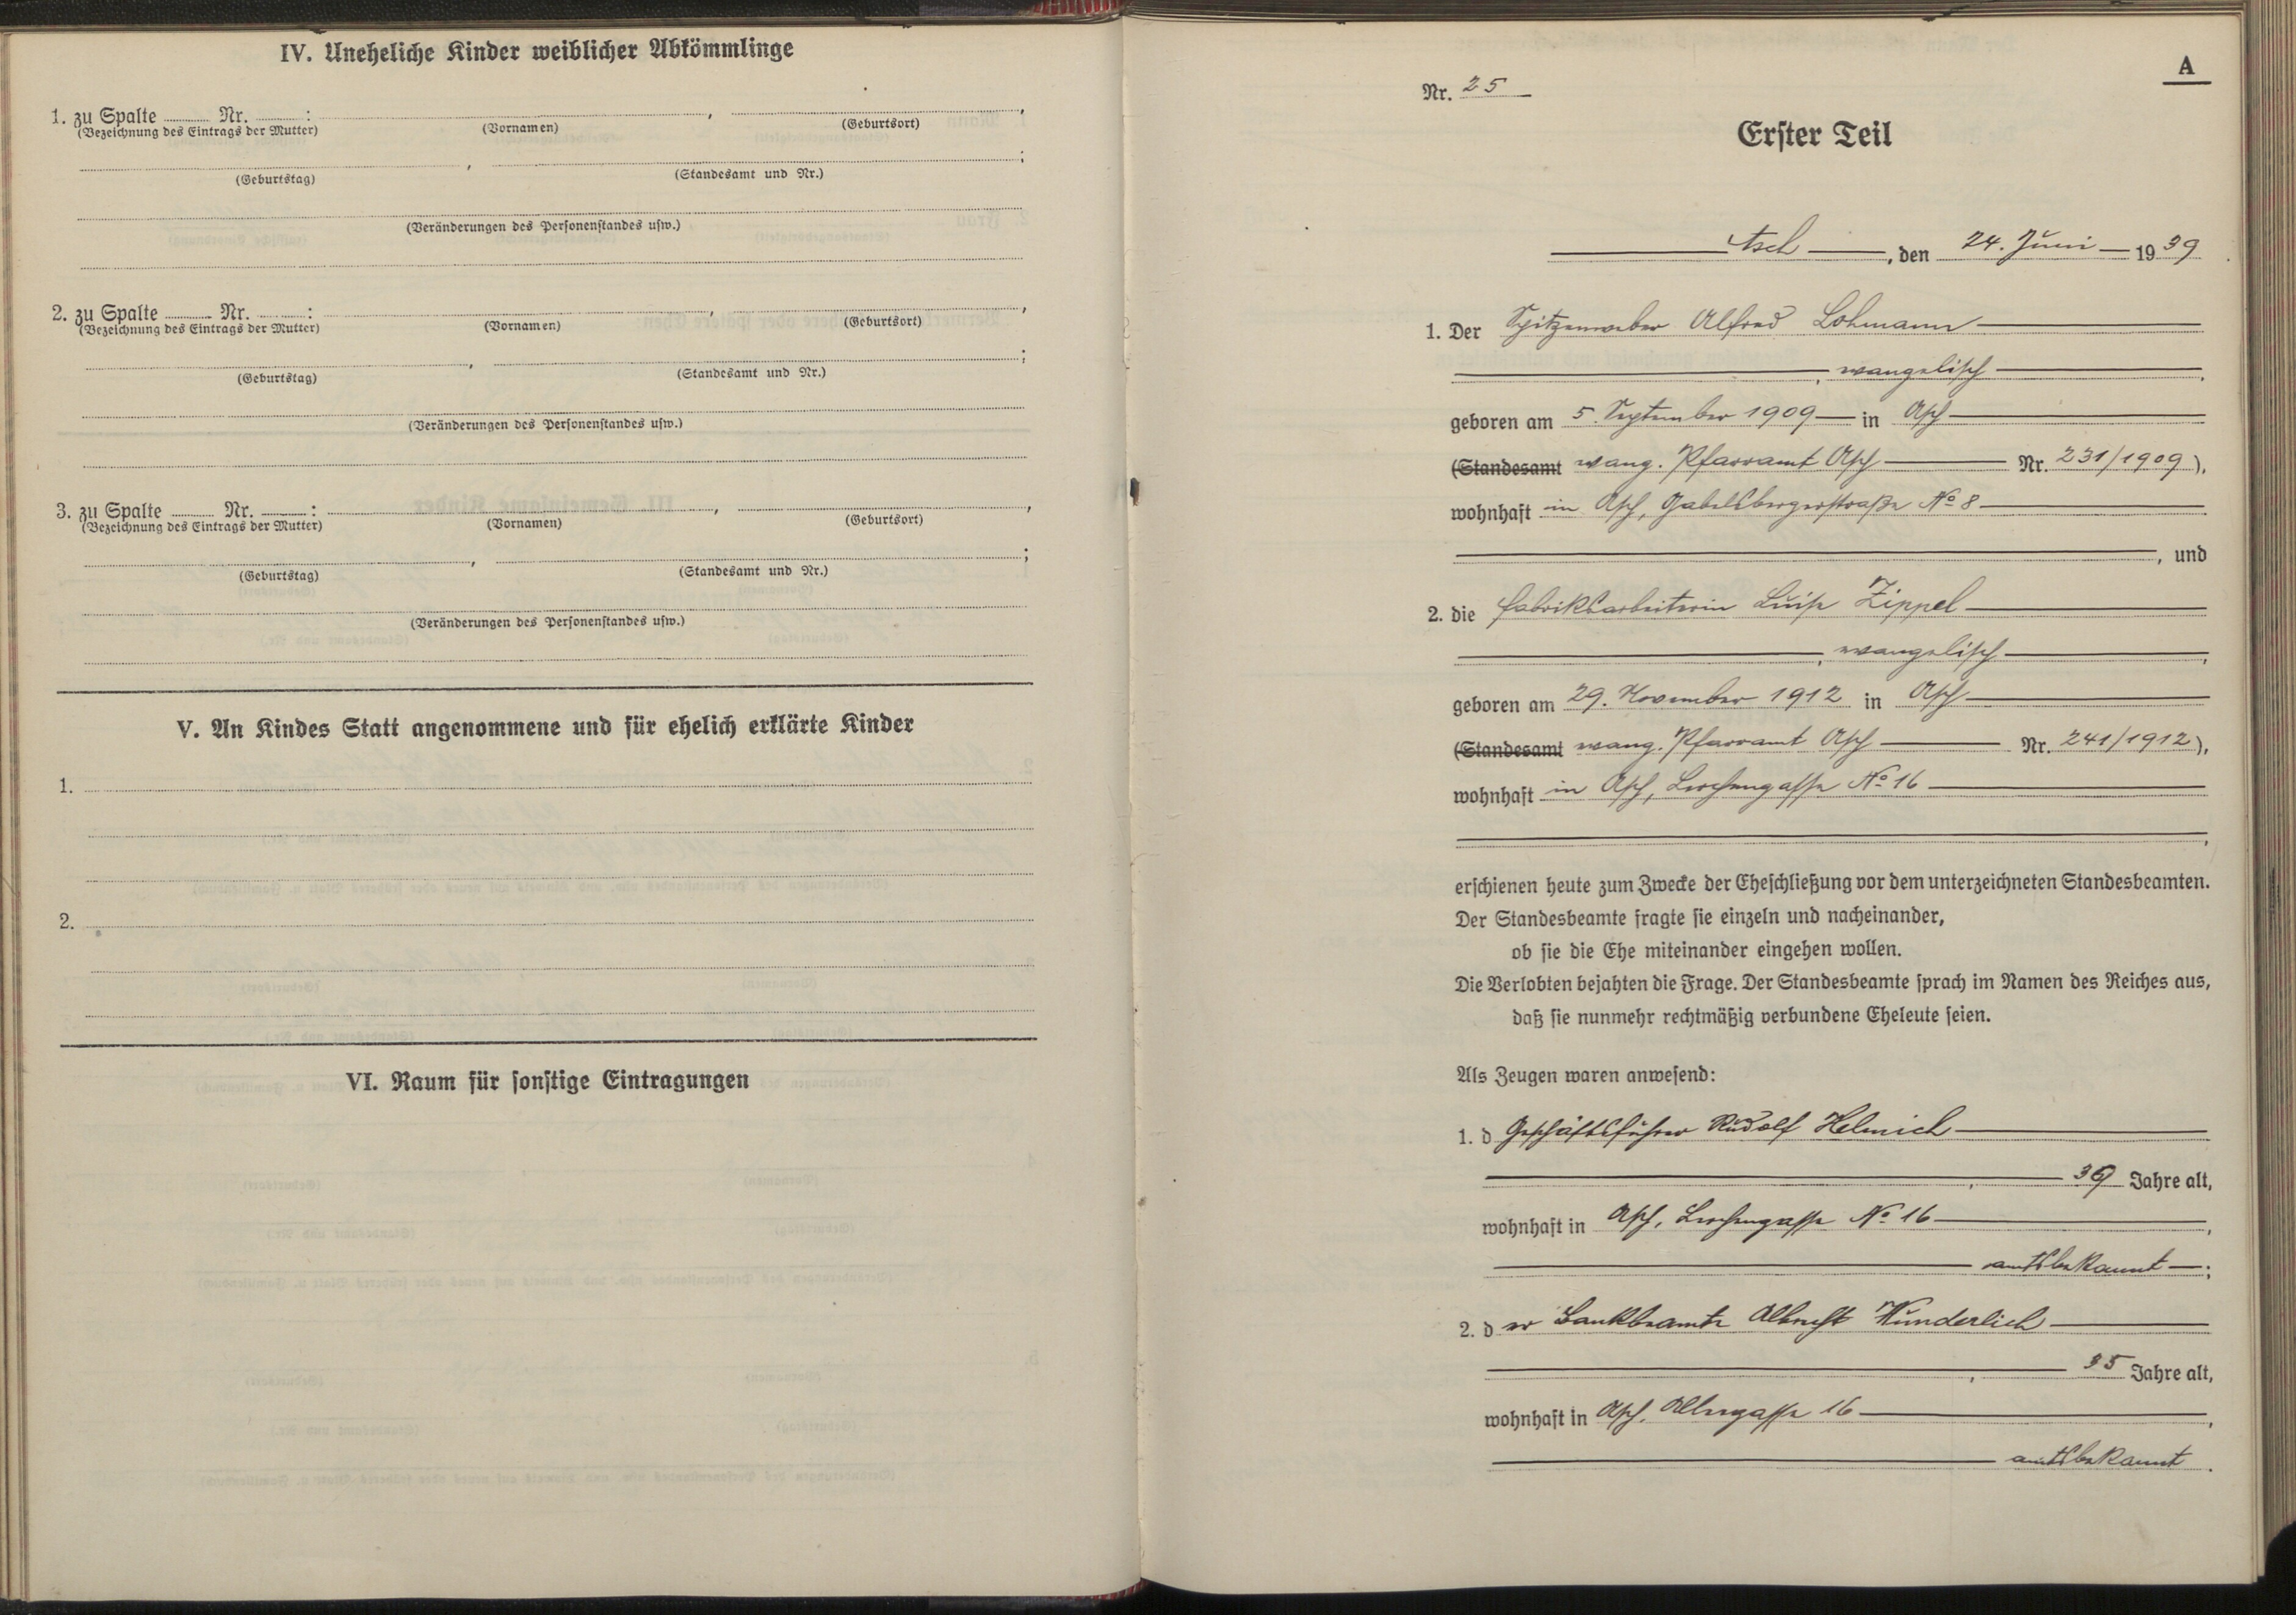 IV. Uneheliche Kinder weiblicher Abkömmlinge
1. zu Spalte ........ Nr. ........ :
(Bezeichnung des Eintrags der Mutter) (Vornamen) (Geburtsort)
(Geburtstag) (Standesamt und Nr.)
(Veränderungen des Personenstandes usw.)
2. zu Spalte ........ Nr. ........ :
(Bezeichnung des Eintrags der Mutter) (Vornamen) (Geburtsort)
(Geburtstag) (Standesamt und Nr.)
(Veränderungen des Personenstandes usw.)
3. zu Spalte ........ Nr. ........ :
(Bezeichnung des Eintrags der Mutter) (Vornamen) (Geburtsort)
(Geburtstag) (Standesamt und Nr.)
(Veränderungen des Personenstandes usw.)
V. An Kindes Statt angenommene und für ehelich erklärte Kinder
1.
2.
VI. Raum für sonstige Eintragungen
A
Nr. 25
Erster Teil
Asch, den 24. Juni 1939
1. Der Spitzenweber Alfred Lohmann
, evangelisch,
geboren am 5. September 1909 in Asch
(Standesamt evang. Pfarramt Asch Nr. 231/1909),
wohnhaft in Asch, Gabelsbergerstraße No 8
, und
2. die Fabriksarbeiterin Luise Zippel
, evangelisch,
geboren am 29. November 1912 in Asch
(Standesamt evang. Pfarramt Asch Nr. 241/1912),
wohnhaft in Asch, Lerchengasse No 16
,
erschienen heute zum Zwecke der Eheschließung vor dem unterzeichneten Standesbeamten.
Der Standesbeamte fragte sie einzeln und nacheinander,
ob sie die Ehe miteinander eingehen wollen.
Die Verlobten bejahten die Frage. Der Standesbeamte sprach im Namen des Reiches aus,
daß sie nunmehr rechtmäßig verbundene Eheleute seien.
Als Zeugen waren anwesend:
1. d Geschäftsführer Rudolf Helmich
, 39 Jahre alt,
wohnhaft in Asch, Lerchengasse No 16,
amtsbekannt;
2. der Bankbeamte Albrecht Wunderlich
, 35 Jahre alt,
wohnhaft in Asch, 16,
amtsbekannt.